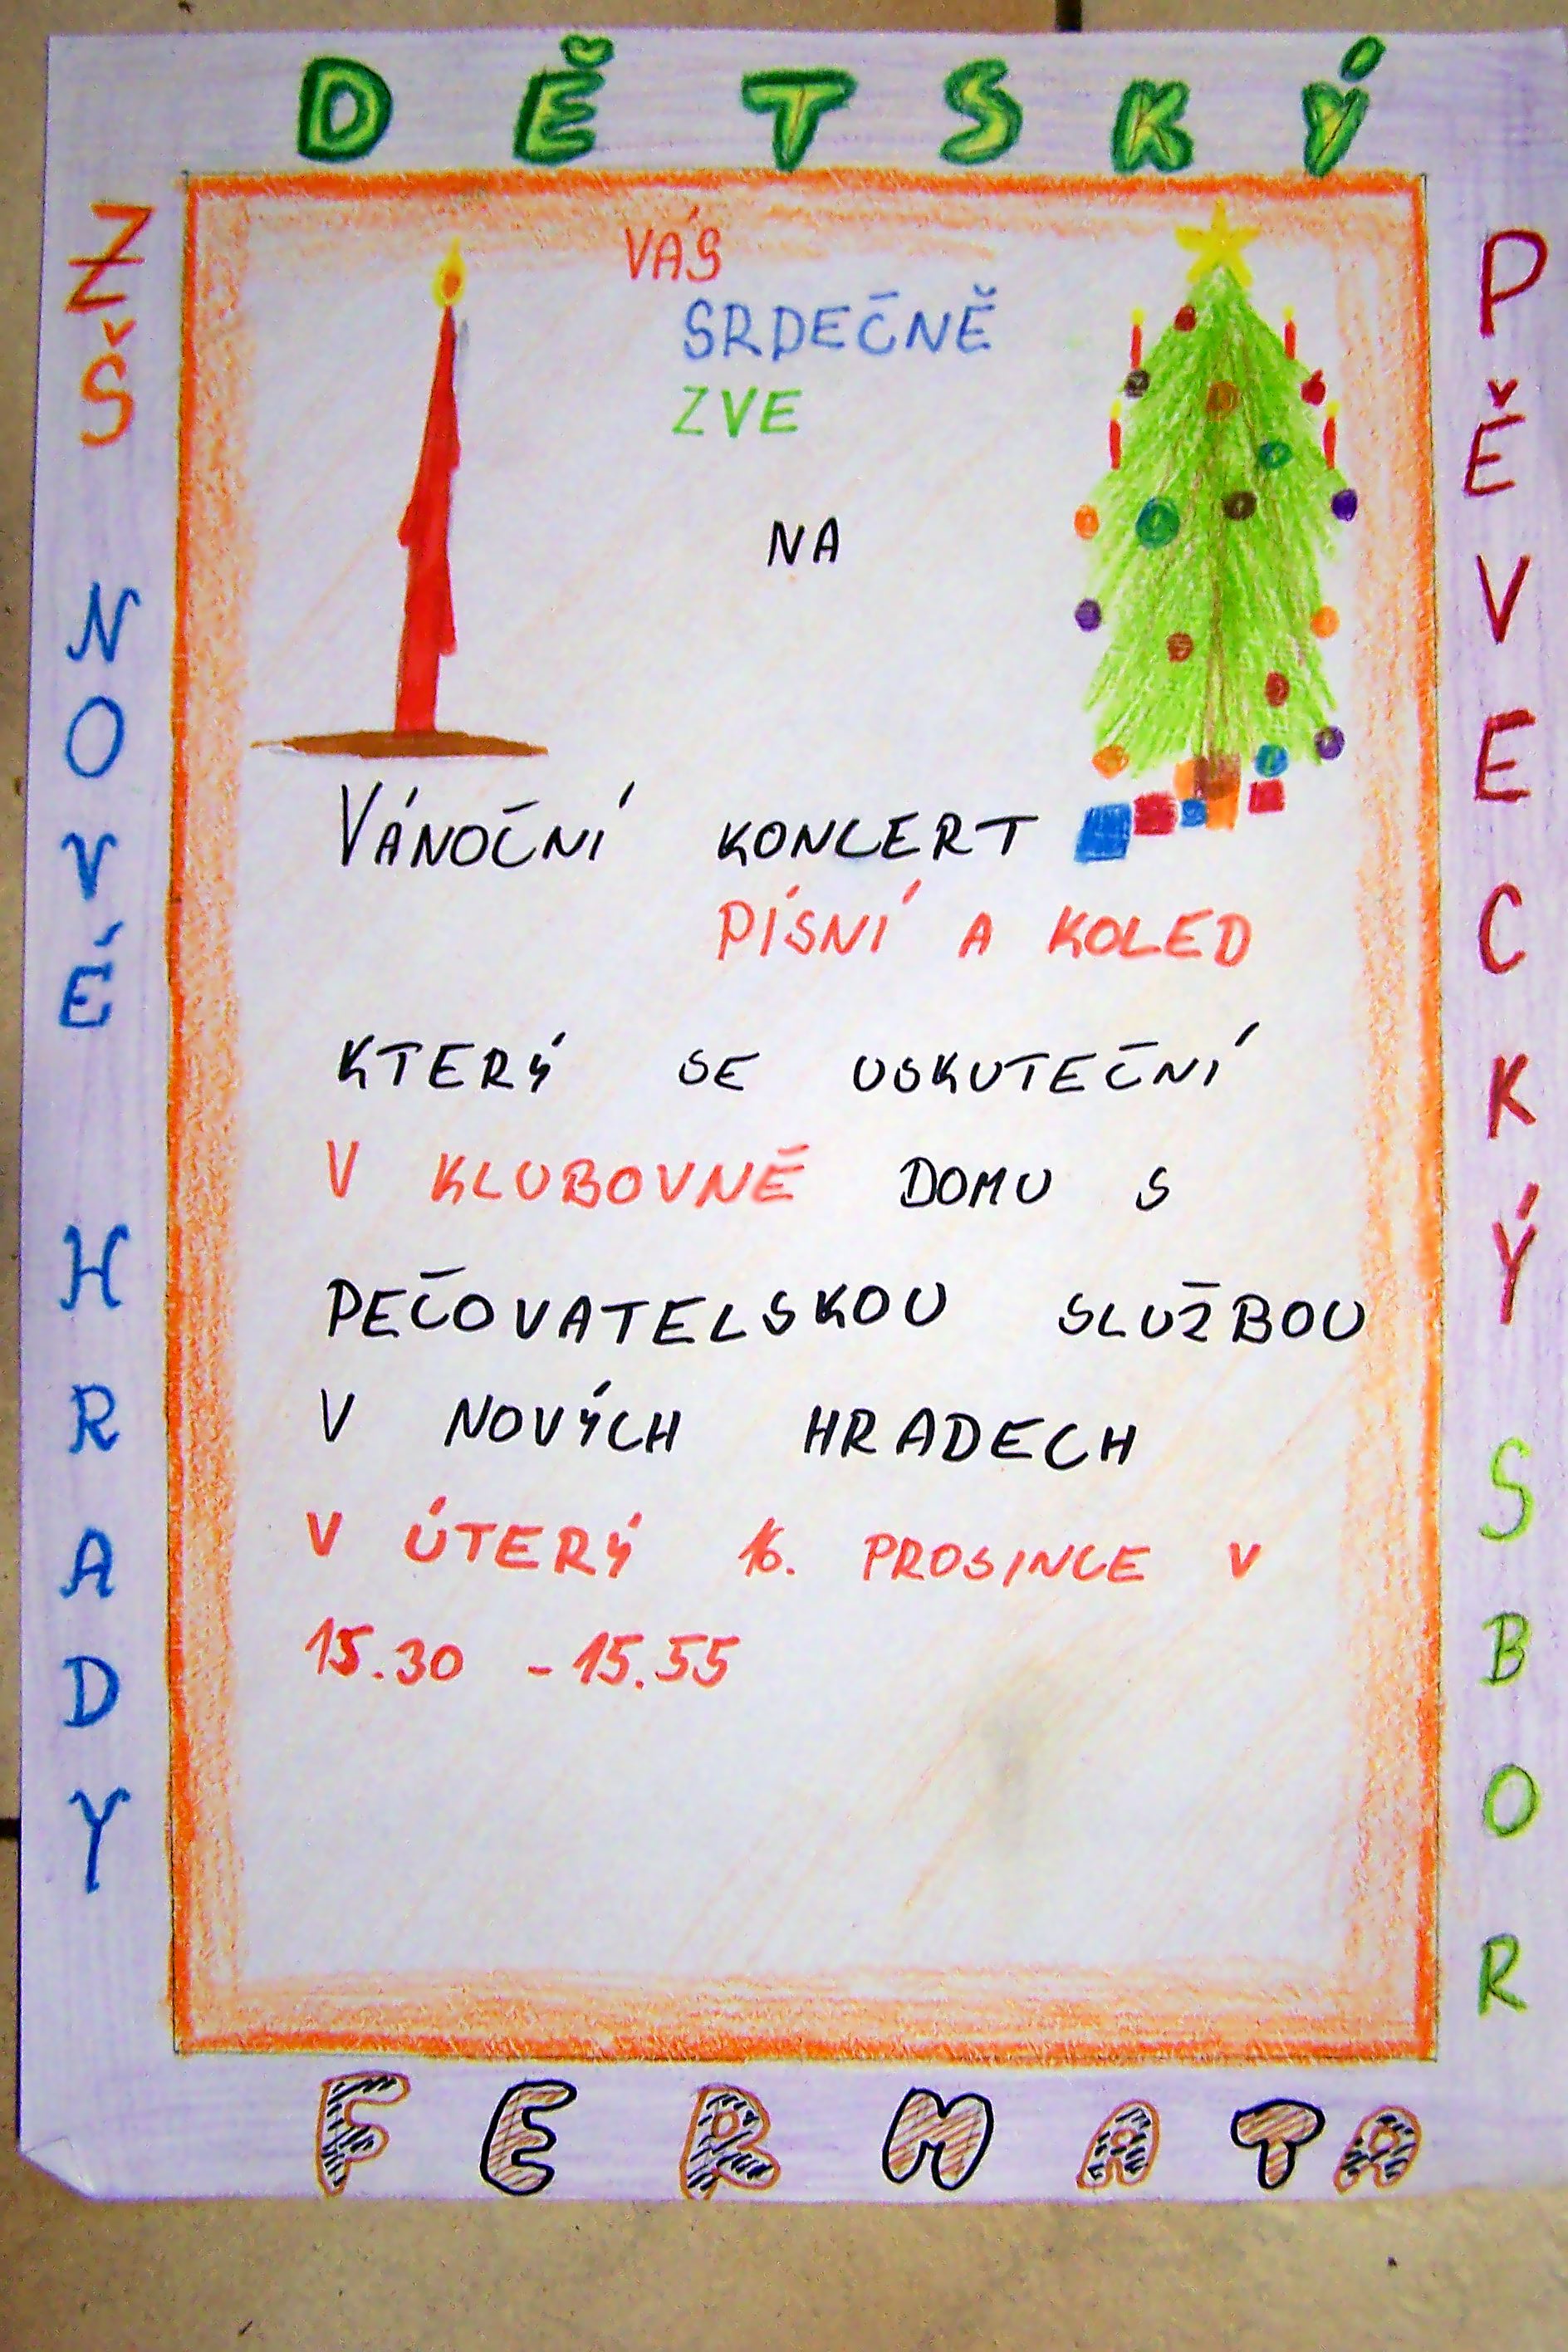 DĚTSKÝ
ZŠ NOVÉ HRADY
PĚVECKÝ SBOR
VÁS
SRDEČNĚ
ZVE
NA
VÁNOČNÍ KONCERT
PÍSNÍ A KOLED
KTERÝ SE USKUTEČNÍ
V KLUBOVNĚ DOMU S
PEČOVATELSKOU SLUŽBOU
V NOVÝCH HRADECH
V ÚTERÝ 16. PROSINCE V
15.30 - 15.55
FERMATA